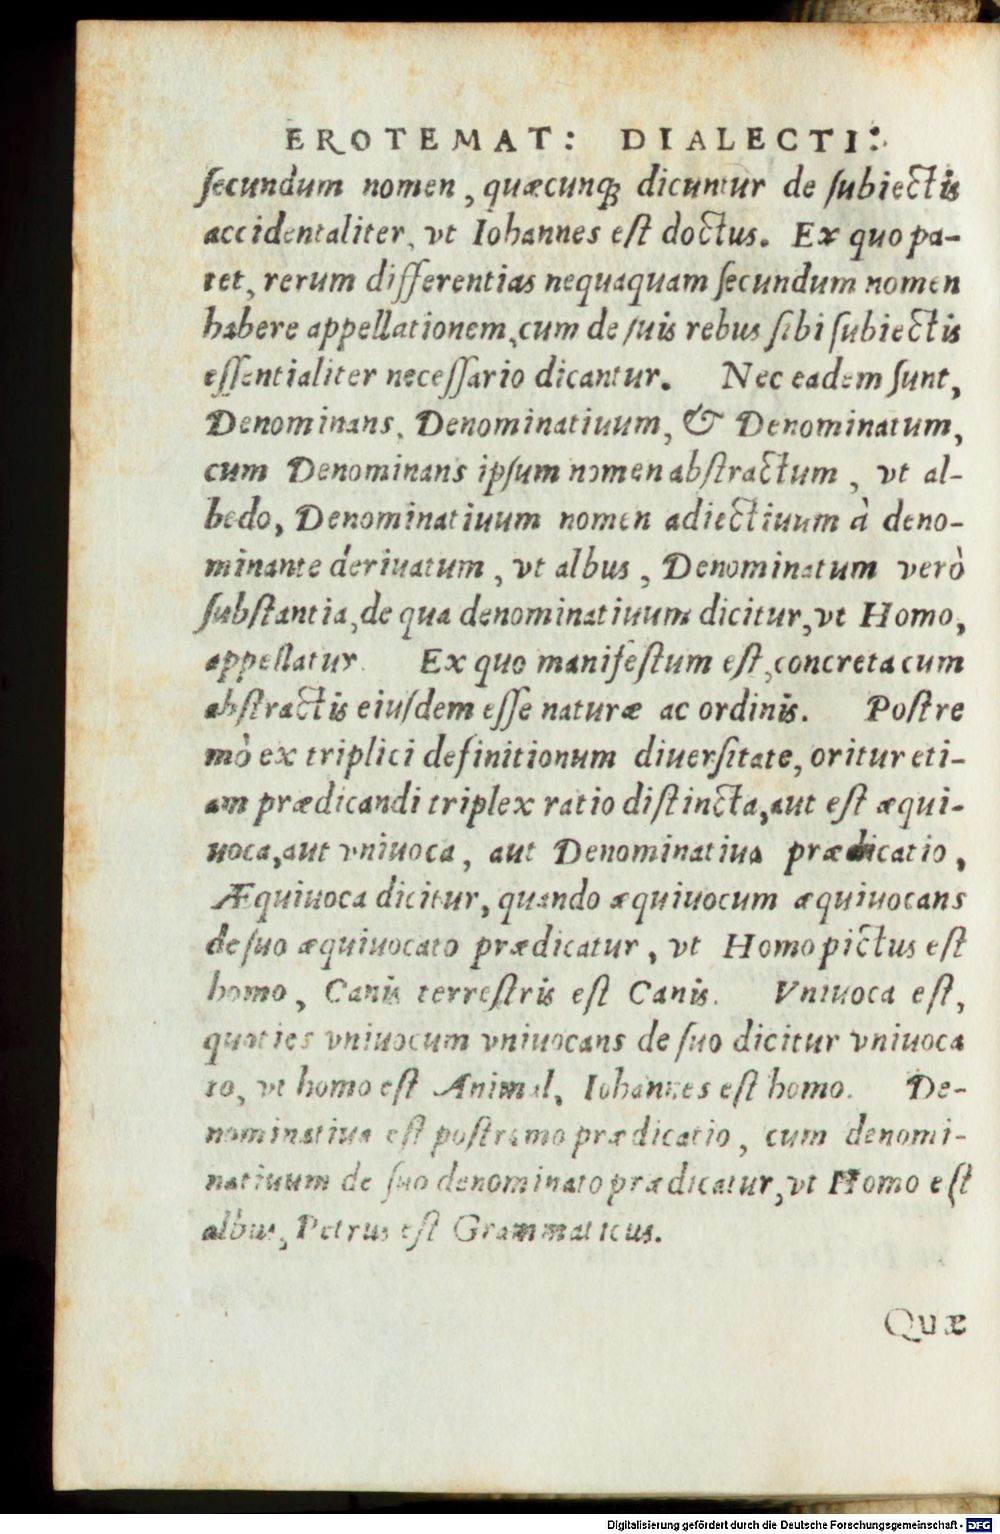 EROTEMAT: DIALECTI:
ſecundum nomen, quæcunqꝫ dicuntur de ſubiectis
accidentaliter, vt Iohannes eſt doctus. Ex quo pa-
tet, rerum differentias nequaquam ſecundum nomen
habere appellationem, cum de ſuis rebus ſibi ſubiectis
eſſentialiter neceſſario dicantur. Nec eadem ſunt,
Denominans, Denominatiuum, & Denominatum,
cum Denominans ipſum nomen abſtractum, vt al-
bedo, Denominatiuum nomen adiectiuum à deno-
minante deriuatum, vt albus, Denominatum verò
ſubſtantia, de qua denominatiuum dicitur, vt Homo,
appellatur. Ex quo manifeſtum eſt, concreta cum
abſtractis eiuſdem eſſe naturæ ac ordinis. Poſtre
mò ex triplici definitionum diuerſitate, oritur eti-
am prædicandi triplex ratio diſtincta, aut eſt æqui-
uoca, aut vniuoca, aut Denominatiua prædicatio,
Æquiuoca dicitur, quando æquiuocum æquiuocans
de ſuo æquiuocato prædicatur, vt Homo pictus eſt
homo, Canis terreſtris eſt Canis. Vniuoca eſt,
quoties vniuocum vniuocans de ſuo dicitur vniuoca
to, vt homo eſt Animal, Iohannes eſt homo. De-
nominatiua eſt poſtremo prædicatio, cum denomi-
natiuum de ſuo denominato prædicatur, vt Homo eſt
albus, Petrus eſt Grammaticus.
Quæ
Digitalisierung gefördert durch die Deutsche Forschungsgemeinschaft - DFG